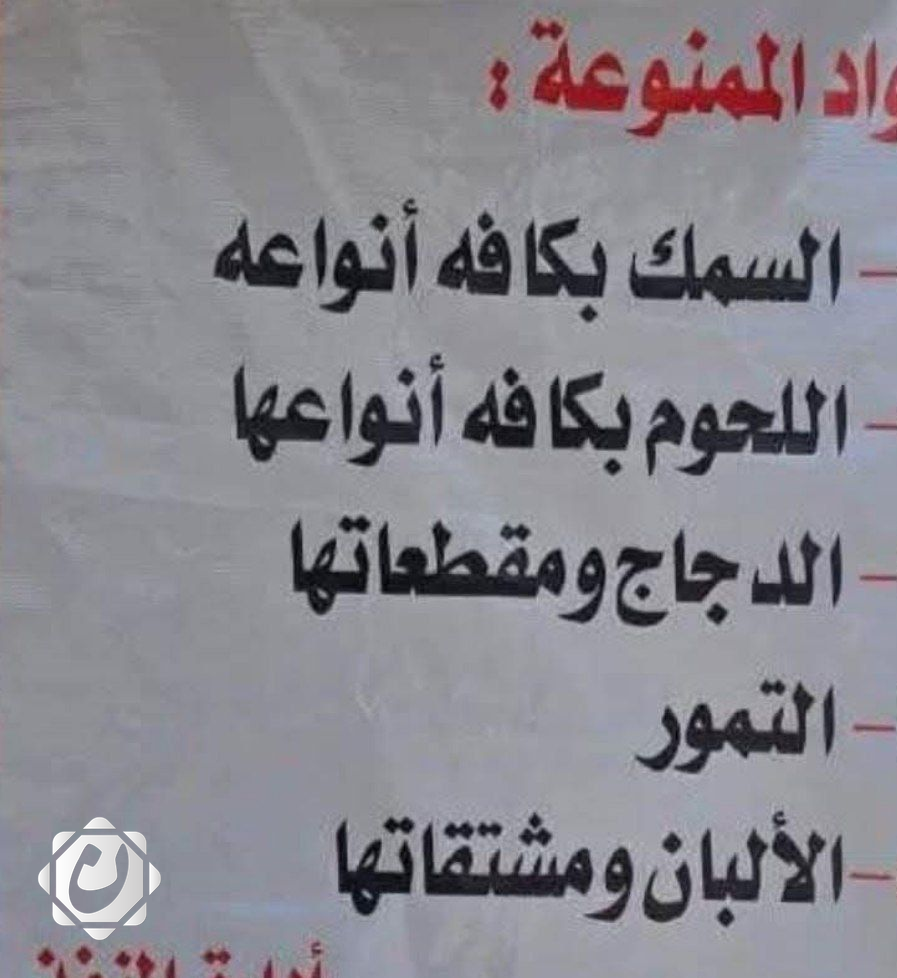 واد الممنوعة :
– السمك بكافه أنواعه
– اللحوم بكافه أنواعها
– الدجاج ومقطعاتها
– التمور
– الألبان ومشتقاتها